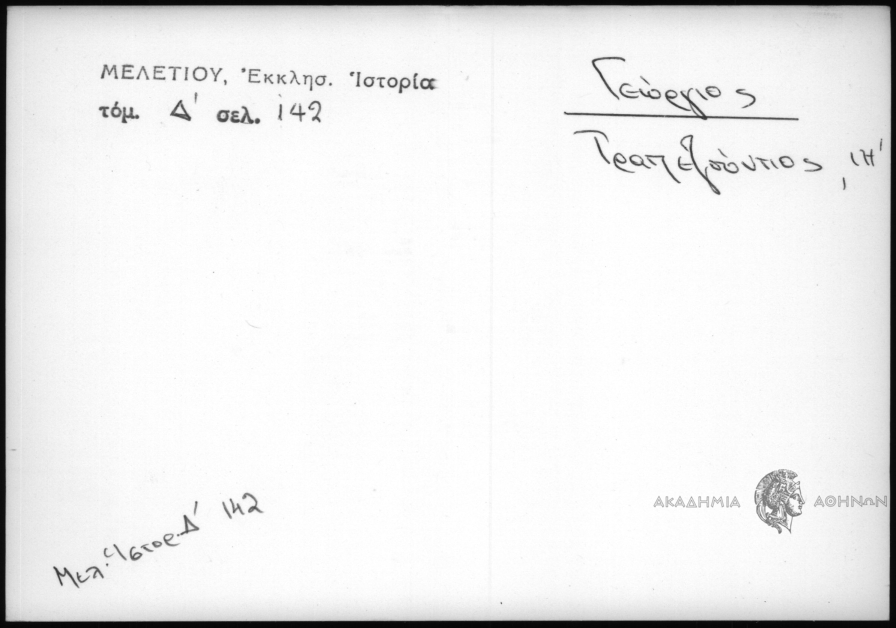 ΜΕΛΕΤΙΟΥ, Ἐκκλησ. Ἱστορία
τόμ. Δ' σελ. 142
Γεώργιος
Τραπεζούντιος, ιη'
ΑΚΑΔΗΜΙΑ ΑΘΗΝΩΝ
Μελ. Ἱστορ. Δ' 142